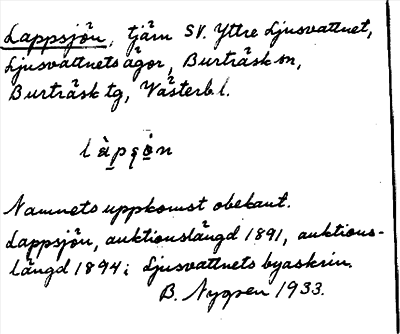 Lappsjön, tjärn SV. Yttre Ljusvattnet,
Ljusvattnets ägor, Burträsk sn,
Burträsk tg, Västerb l.
làpşòn
Namnets uppkomst obekant.
Lappsjön, auktionslängd 1891, auktions-
längd 1894; Ljusvattnets byaskrin.
B. Nygren 1933.